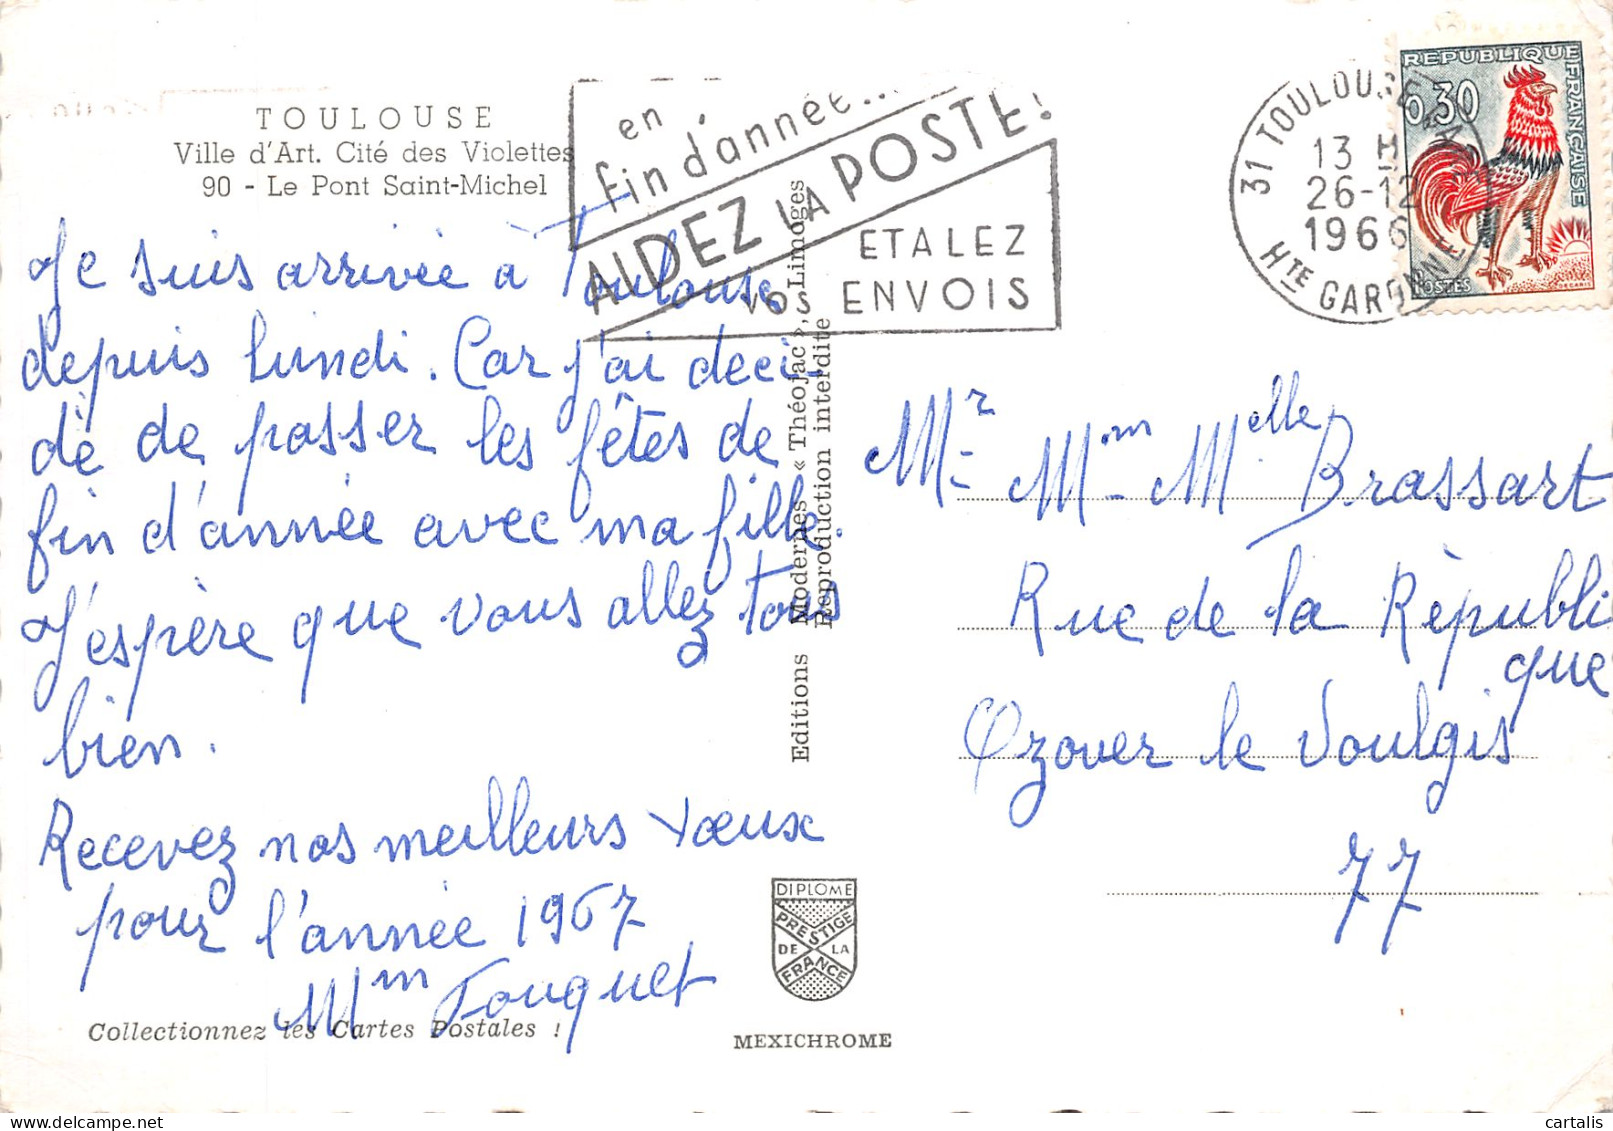 TOULOUSE
Ville d'Art. Cité des Violettes
90 - Le Pont Saint-Michel
en
fin d'année...
AIDEZ LA POSTE!
ETALEZ
VOS ENVOIS
31 TOULOUSE
13 H
26-12
1966
HTE GARONNE
REPUBLIQUE FRANÇAISE
0,30
POSTES
DECARIS
Je suis arrivée à Toulouse
depuis lundi. Car j'ai deci-
dé de passer les fêtes de
fin d'année avec ma fille.
J'espère que vous allez tous
bien.
Recevez nos meilleurs vœux
pour l'année 1967
Mm Fouquet
Collectionnez les Cartes Postales !
Editions Modernes « Théojac », Limoges
Reproduction interdite
DIPLOME
PRESTIGE
DE LA
FRANCE
MEXICHROME
Mr Mm Melle Brassart
Rue de la Républi
que
Ozouer le Voulgis
77
cartalis